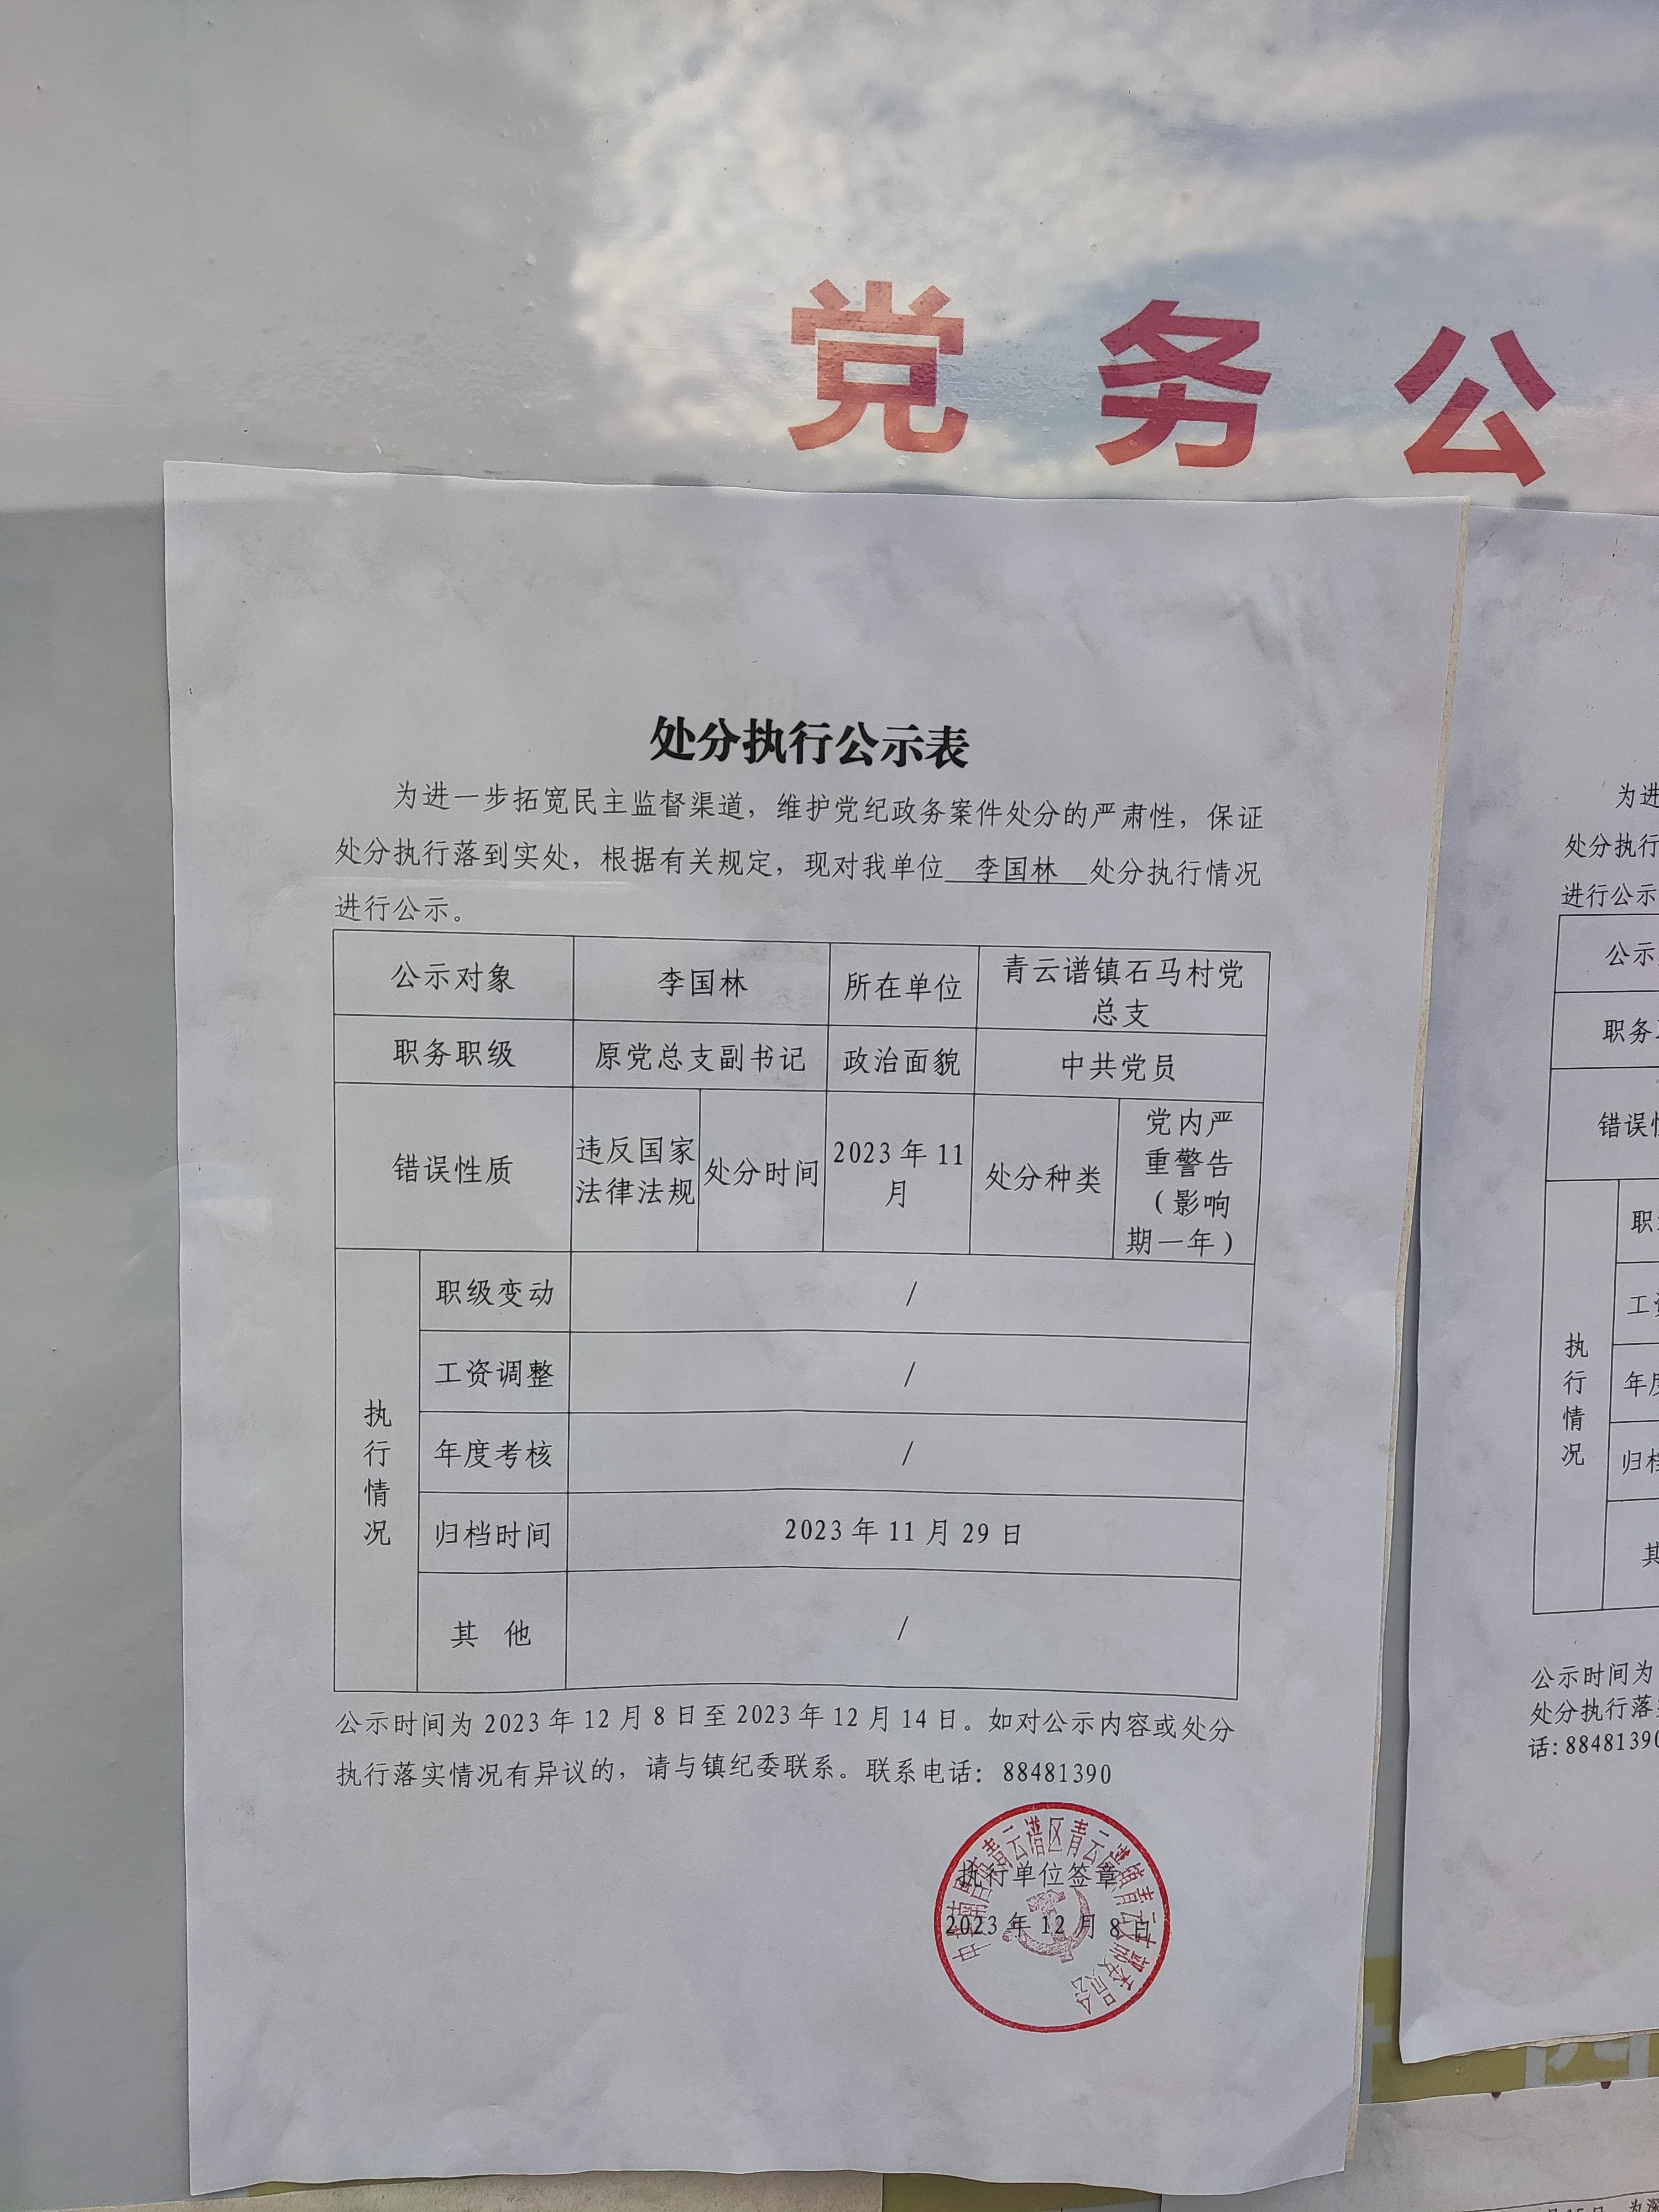 党务公
处分执行公示表
为进一步拓宽民主监督渠道，维护党纪政务案件处分的严肃性，保证
处分执行落到实处，根据有关规定，现对我单位 李国林 处分执行情况
进行公示。
公示对象 李国林 所在单位 青云谱镇石马村党
总支
职务职级 原党总支副书记 政治面貌 中共党员
错误性质 违反国家
法律法规 处分时间 2023年11
月 处分种类 党内严
重警告
（影响
期一年）
执行情况
职级变动 /
工资调整 /
年度考核 /
归档时间 2023年11月29日
其 他 /
公示时间为2023年12月8日至2023年12月14日。如对公示内容或处分
执行落实情况有异议的，请与镇纪委联系。联系电话：88481390
执行单位签章
2023年12月8日
为进
处分执行
进行公示
公示
职务
错误
执行情况
职
工
年
归
公示时间为
处分执行落
话：88481390